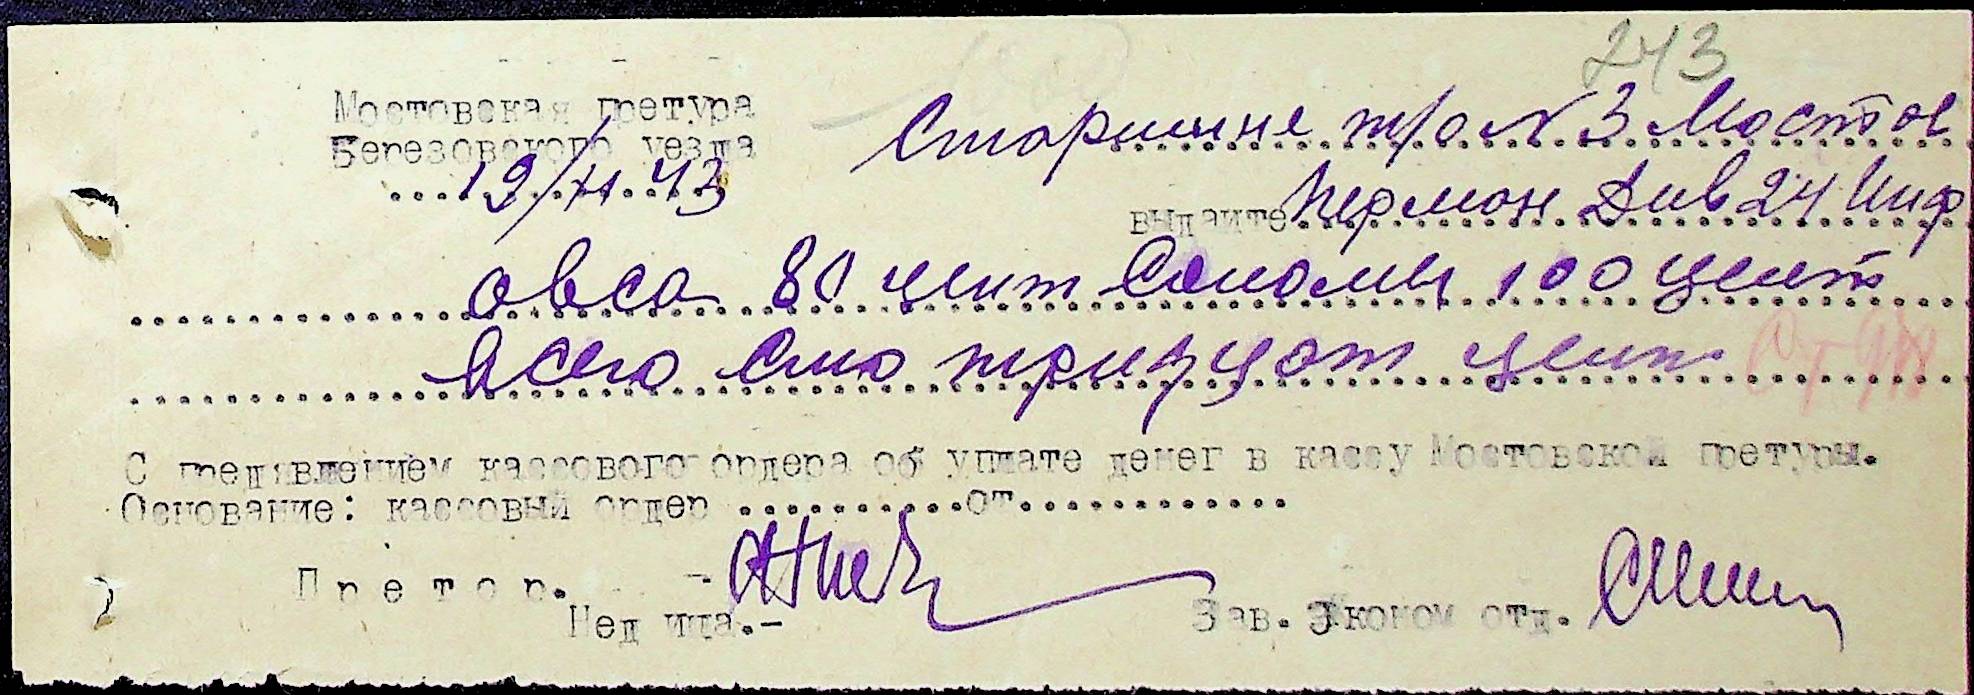 243
Мостовская претура
Березовского уезда
19/XI 43
Старшине т/о N 3 Мостов
выдайте Герман Див 24 Инф
овса 80 цент Соломы 100 цент
всего сто тридцат цент
С предявлением кассового ордера об уплате денег в кассу Мостовской претуры.
Основание: кассовый ордер ..........от............
Претор. -
Недица.-
Зав. Эконом отд.